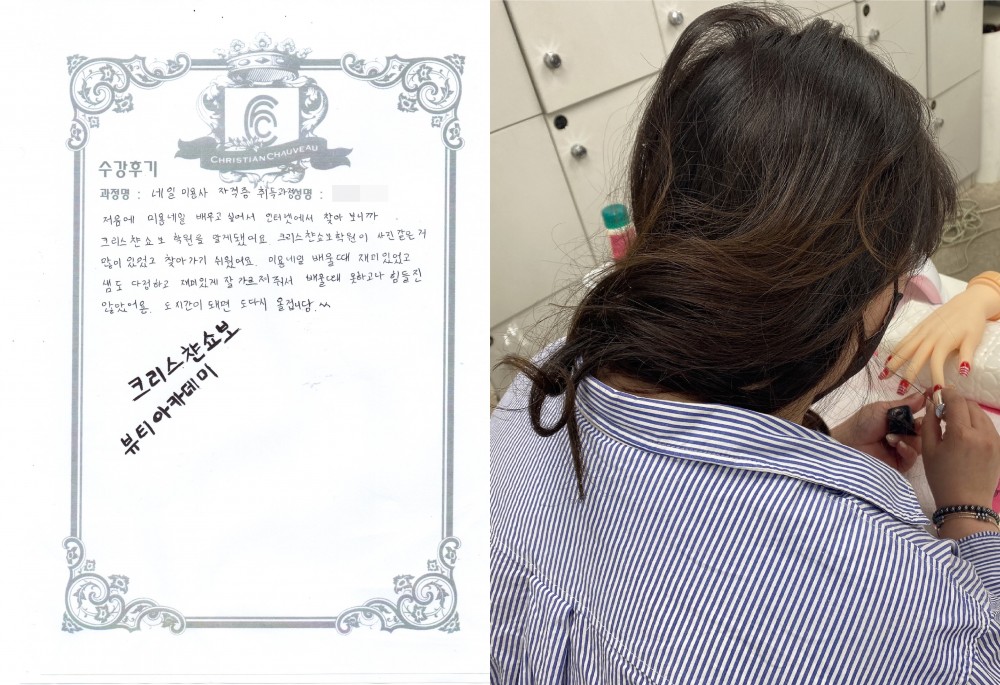 CHRISTIAN CHAUVEAU
수강후기
과정명 : 네일 미용사 자격증 취득과정 성명 :
처음에 미용네일 배우고 싶어서 인터넷에서 찾아 보니까
크리스챤쇼보 학원을 알게됐어요 크리스챤쇼보학원이 사진같은거
많이 있었고 찾아가기 쉬웠어요. 미용네일 배울때 재미있었고
쌤도 다정하고 재미있게 잘 가르쳐줘서 배울때 못하고나 힘들진
않았어용. 또 시간이 돼면 또다시 올겁니당. ^^
크리스챤쇼보
뷰티아카데미